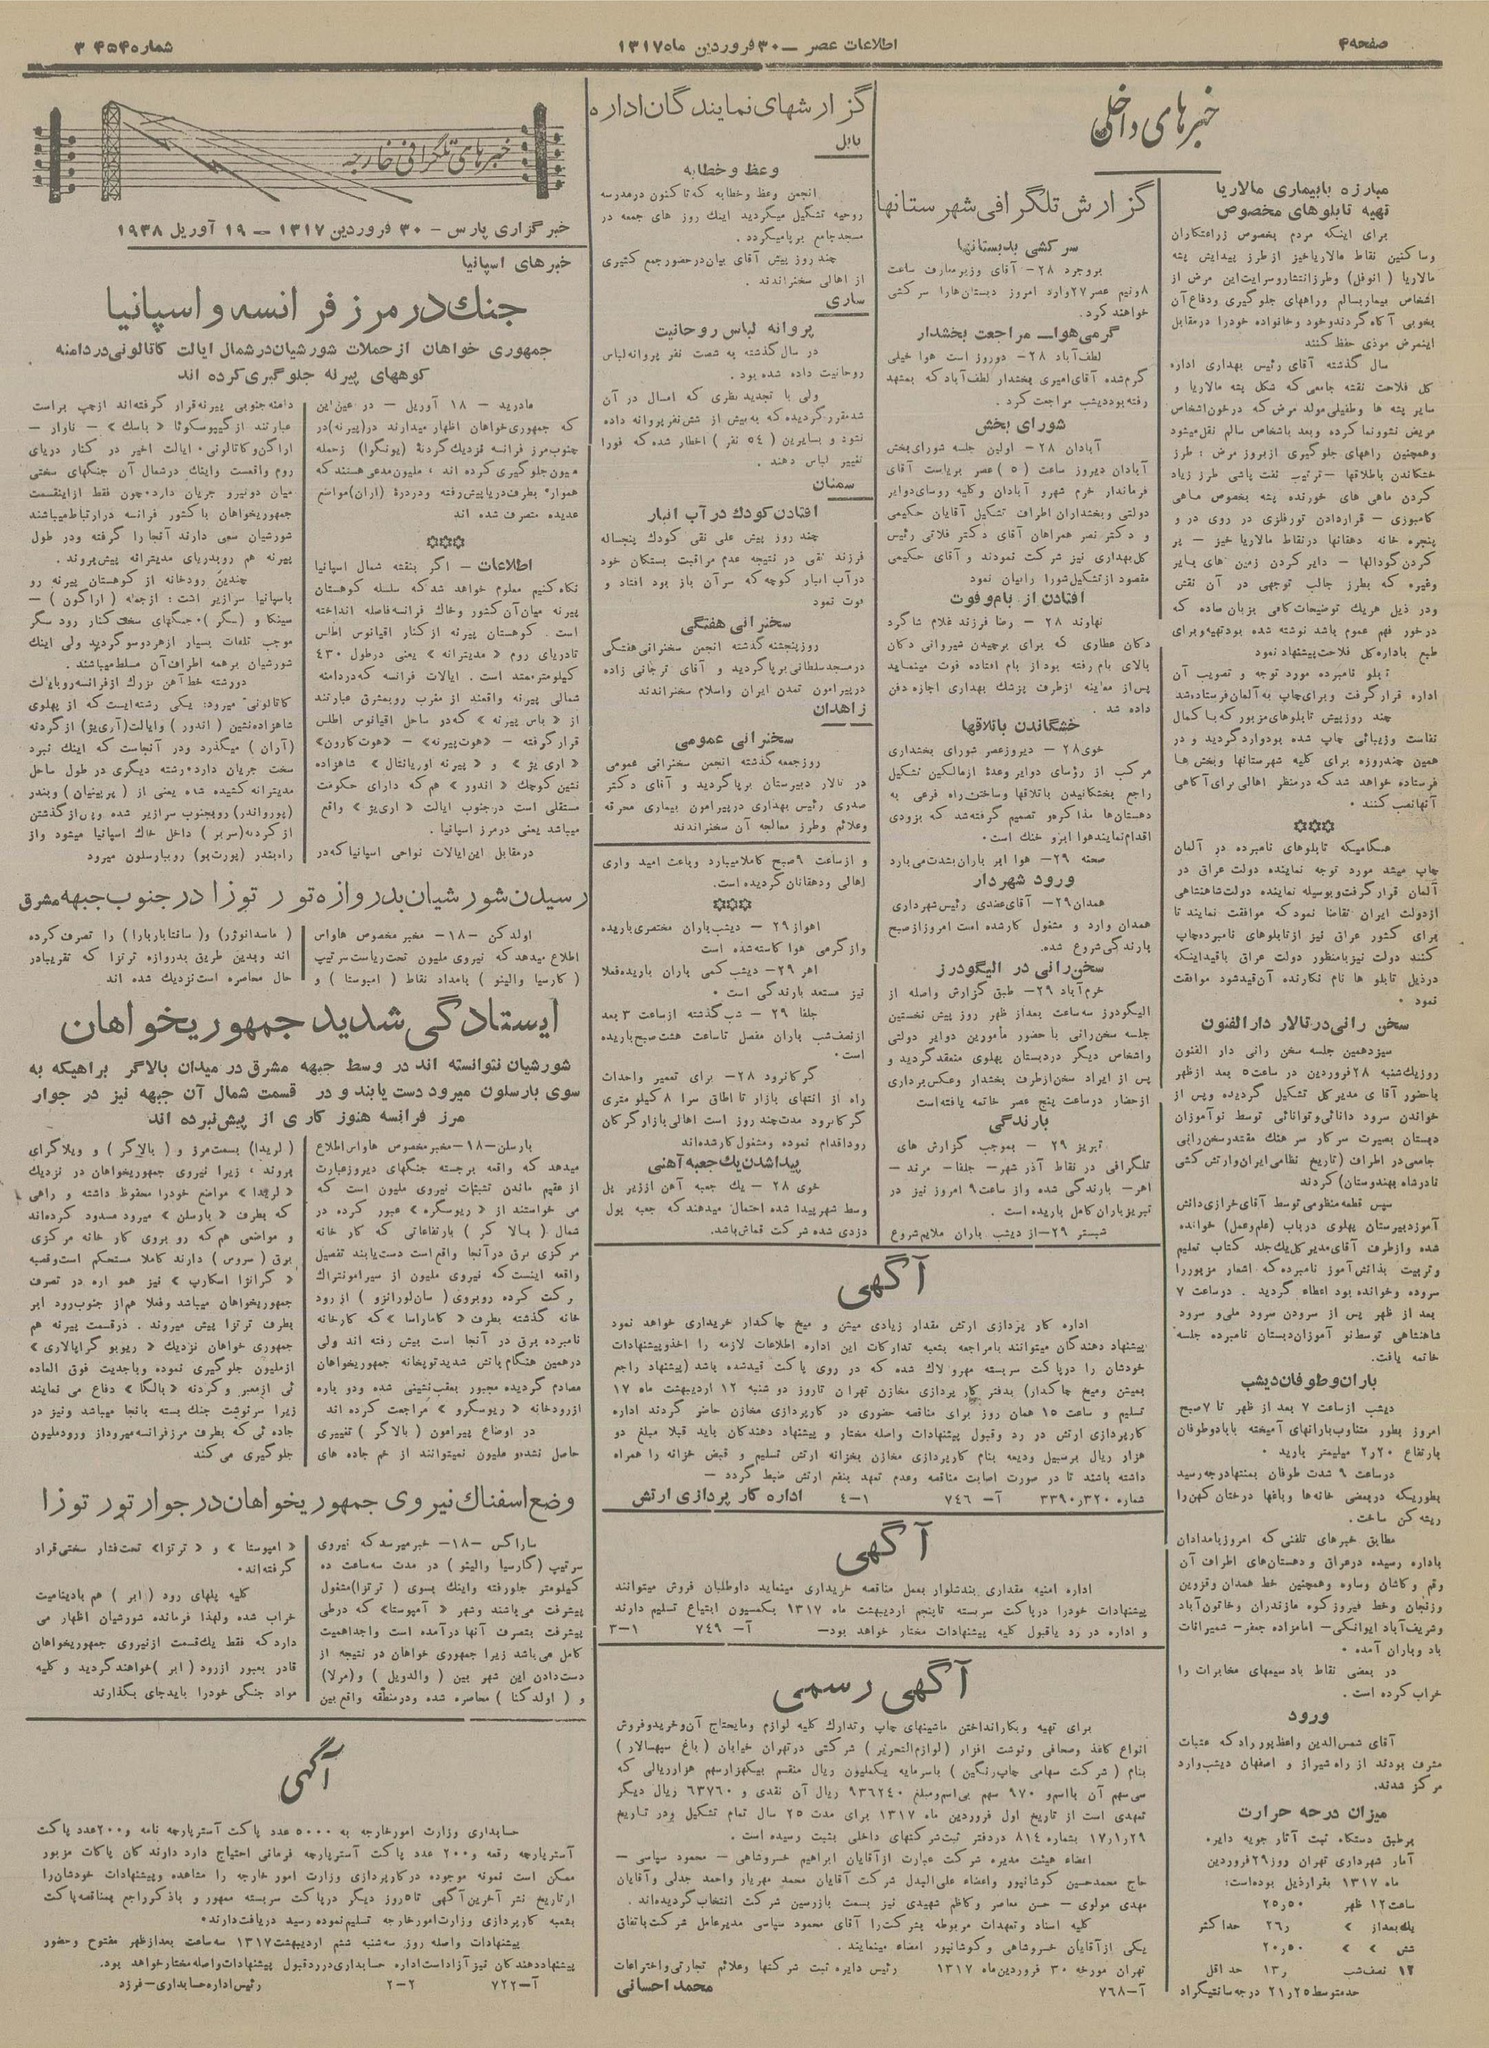 صفحه ۴
اطلاعات عصر – ۳۰ فروردین ماه ۱۳۱۷
شماره ۳۴۵۴
خبرهای داخلی
مبارزه با بیماری مالاریا
تهیه تابلوهای مخصوص
برای اینکه مردم بخصوص زراعتکاران
وساکنین نقاط مالاریاخیز از طرز پیدایش پشه
مالاریا (انوفل) وطرز انتشار وسرایت این مرض از
اشخاص بیمار بسالم وراههای جلوگیری ودفاع آن
بخوبی آگاه گردند وخود وخانواده خودرا درمقابل
اینمرض موذی حفظ کنند
سال گذشته آقای رئیس بهداری اداره
کل فلاحت نقشه جامعی که شکل پشه مالاریا و
سایر پشه ها وطفیلی مولد مرض که درخون اشخاص
مریض نشوونما کرده وبعد باشخاص سالم نقل میشود
وهمچنین راههای جلوگیری از بروز مرض : طرز
خشکاندن باطلاقها – ترتیب نفت پاشی طرز زیاد
کردن ماهی های خورنده پشه بخصوص ماهی
کامبوزی – قراردادن تورفلزی در روی در و
پنجره خانه دهقانها درنقاط مالاریا خیز – پر
کردن گودالها – دایر کردن زمین های بایر
وغیره که بطرز جالب توجهی در آن نقش
ودر ذیل هریک توضیحات کافی بزبان ساده که
درخور فهم عموم باشد نوشته شده بود تهیه وبرای
طبع باداره کل فلاحت پیشنهاد نمود
تابلو نامبرده مورد توجه و تصویب آن
اداره قرار گرفت وبرای چاپ به آلمان فرستاده شد
چند روز پیش تابلوهای مزبور که با کمال
نفاست وزیبائی چاپ شده بود وارد گردید و در
همین چندروزه برای کلیه شهرستانها وبخش ها
فرستاده خواهد شد که درمنظر اهالی برای آگاهی
آنها نصب کنند ٠
هنگامیکه تابلوهای نامبرده در آلمان
چاپ میشد مورد توجه نماینده دولت عراق در
آلمان قرار گرفت وبوسیله نماینده دولت شاهنشاهی
ازدولت ایران تقاضا نمود که موافقت نمایند تا
برای کشور عراق نیز از تابلوهای نامبرده چاپ
کنند دولت نیز بامنظور دولت عراق باقید اینکه
درذیل تابلو ها نام نگارنده آن قید شود موافقت
نمود ٠
سخن رانی در تالار دارالفنون
سیزدهمین جلسه سخن رانی دار الفنون
روز یکشنبه ۲۸ فروردین در ساعت ۵ بعد از ظهر
باحضور آقا ی مدیر کل تشکیل گردیده وپس از
خواندن سرود دانائی وتوانائی توسط نو آموزان
دبستان بصیرت سرکار سرهنک مقتدر سخن رانی
جامعی در اطراف (تاریخ نظامی ایران وارتش کشی
نادرشاه بهندوستان) کردند
سپس قطعه منظومی توسط آقای خرازی دانش
آموز دبیرستان پهلوی درباب (علم وعمل) خوانده
شده وازطرف آقای مدیر کل یک جلد کتاب تعلیم
وتربیت بدانش آموز نامبرده که اشعار مزبور را
سروده وخوانده بود اعطاء گردید . درساعت ۷
بعد از ظهر پس از سرودن سرود ملی و سرود
شاهنشاهی توسط نو آموزان دبستان نامبرده جلسه
خاتمه یافت.
باران وطوفان دیشب
دیشب از ساعت ۷ بعد از ظهر تا ۷ صبح
امروز بطور متناوب بارانهای آمیخته بابادوطوفان
بارتفاع ۲ر۲۰ میلیمتر بارید ٠
درساعت ۹ شدت طوفان بمنتهادرجه رسید
بطوریکه دربعضی خانه ها وباغها درختان کهن را
ریشه کن ساخت.
مطابق خبرهای تلفنی که امروز بامدادان
باداره رسیده درعراق و دهستان های اطراف آن
وقم وکاشان وساوه وهمچنین خط همدان وقزوین
وزنجان وخط فیروز کوه مازندران وخاتون آباد
وشریف آباد ایوانکی – امامزاده جعفر – شمیرانات
باد وباران آمده ٠
در بعضی نقاط باد سیمهای مخابرات را
خراب کرده است .
ورود
آقای شمس الدین واعظ پور راد که عتبات
مشرف بودند از راه شیراز و اصفهان دیشب وارد
مرکز شدند.
میزان درجه حرارت
برطبق دستگاه ثبت آثار جویه دایره
آمار شهرداری تهران روز ۲۹ فروردین
ماه ۱۳۱۷ بقرار ذیل بوده است:
ساعت ۱۲ ظهر ۲۵ر۵۰
یک بعداز » ۲۶ر حداکثر
شش » » ۲۰ر۵۰
۱۲ نصف شب ۱۳ر حد اقل
حدمتوسط ۲۱ر۲۵ درجه سانتیگراد
گزارش تلگرافی شهرستانها
سرکشی بدبستانها
بروجرد ۲۸ – آقای وزیر معارف ساعت
۸ونیم عصر ۲۷ وارد امروز دبستان هارا سرکشی
خواهند کرد.
گرمی هوا – مراجعت بخشدار
لطف آباد ۲۸ – دوروز است هوا خیلی
گرم شده آقای امیری بخشدار لطف آباد که بمشهد
رفته بود دیشب مراجعت کرد .
شورای بخش
آبادان ۲۸ – اولین جلسه شورای بخش
آبادان دیروز ساعت (۵) عصر بریاست آقای
فرماندار خرم شهر و آبادان وکلیه روسای دوایر
دولتی وبخشداران اطراف تشکیل آقایان حکیمی
و دکتر نصر همراهان آقای دکتر فلاتی رئیس
کل بهداری نیز شرکت نمودند و آقای حکیمی
مقصود از تشکیل شورا رابیان نمود
افتادن از بام وفوت
نهاوند ۲۸ – رضا فرزند غلام شاگرد
دکان عطاری که برای برچیدن شیروانی دکان
بالای بام رفته بود از بام افتاده فوت مینماید
پس از معاینه از طرف پزشک بهداری اجازه دفن
داده شد .
خشگاندن باتلاقها
خوی ۲۸ – دیروز عصر شورای بخشداری
مرکب از رؤسای دوایر وعدهٔ ازمالکین تشکیل
راجع بخشکانیدن باتلاقها وساختن راه فرعی به
دهستان ها مذاکره و تصمیم گرفته شد که بزودی
اقدام نمایند هوا ابر و خنک است٠
صحنه ۲۹ – هوا ابر باران بشدت می بارد
ورود شهردار
همدان ۲۹ – آقای عضدی رئیس شهرداری
همدان وارد و مشغول کار شده است امروز از صبح
بارندگی شروع شده.
سخن رانی در الیگودرز
خرم آباد ۲۹ – طبق گزارش واصله از
الیگودرز سه ساعت بعداز ظهر روز پیش نخستین
جلسه سخن رانی با حضور مأمورین دوایر دولتی
واشخاص دیگر دردبستان پهلوی منعقد گردید و
پس از ایراد سخن از طرف بخشدار وعکس برداری
از حضار درساعت پنج عصر خاتمه یافته است
بارندگی
تبریز ۲۹ – بموجب گزارش های
تلگرافی در نقاط آذر شهر – جلفا – مرند –
اهر – بارندگی شده واز ساعت ۹ امروز نیز در
تبریز باران کامل باریده است .
شبستر ۲۹ – از دیشب باران ملایم شروع
گزارشهای نمایندگان اداره
بابل
وعظ وخطابه
انجمن وعظ وخطابه که تا کنون درمدرسه
روحیه تشکیل میگردید اینک روز های جمعه در
مسجد جامع برپا میگردد .
چند روز پیش آقای بیان درحضور جمع کثیری
از اهالی سخنراندند .
ساری
پروانه لباس روحانیت
در سال گذشته به شصت نفر پروانه لباس
روحانیت داده شده بود .
ولی با تجدید نظری که امسال در آن
شده مقرر گردیده که به بیش از شش نفر پروانه داده
نشود و بسایرین (۵۴ نفر) اخطار شده که فورا
تغییر لباس دهند .
سمنان
افتادن کودک در آب انبار
چند روز پیش علی نقی کودک پنجساله
فرزند تقی در نتیجه عدم مراقبت بستگان خود
در آب انبار کوچه که سر آن باز بود افتاد و
فوت نمود
سخنرانی هفتگی
روز پنجشنبه گذشته انجمن سخنرانی هفتگی
درمسجد سلطانی برپا گردید و آقای ترجانی زاده
در پیرامون تمدن ایران واسلام سخنراندند
زاهدان
سخنرانی عمومی
روز جمعه گذشته انجمن سخنرانی عمومی
در تالار دبیرستان برپا گردید و آقای دکتر
صدری رئیس بهداری درپیرامون بیماری محرقه
وعلائم وطرز معالجه آن سخنراندند
و از ساعت ۹ صبح کاملا میبارد وباعث امید واری
اهالی ودهقانان گردیده است.
اهواز ۲۹ – دیشب باران مختصری باریده
واز گرمی هوا کاسته شده است
اهر ۲۹ – دیشب کمی باران باریده فعلا
نیز مستعد بارندگی است ٠
جلفا ۲۹ – شب گذشته از ساعت ۳ بعد
از نصف شب باران مفصل تاساعت هشت صبح باریده
است ٠
گرکانرود ۲۸ – برای تعمیر واحداث
راه از انتهای بازار تا اطاق سرا ۸ کیلو متری
گرکانرود مدت چند روز است اهالی بازار گرکان
رود اقدام نموده ومشغول کار شده اند
پیدا شدن یک جعبه آهنی
خوی ۲۸ – یک جعبه آهن از زیر پل
وسط شهر پیدا شده احتمال میدهند که جعبه پول
دزدی شده شرکت قماش باشد.
آگهی
اداره کار پردازی ارتش مقدار زیادی میتن و میخ چاکدار خریداری خواهد نمود
پیشنهاد دهندگان میتوانند بامراجعه بشعبه تدارکات این اداره اطلاعات لازمه را اخذ وپیشنهادات
خودشان را درپاکت سربسته مهرو لاک شده که در روی پاکت قیدشده باشد (پیشنهاد راجع
بمیتن ومیخ چاکدار) بدفتر کار پردازی مخازن تهران تاروز دو شنبه ۱۲ اردیبهشت ماه ۱۷
تسلیم و ساعت ۱۵ همان روز برای مناقصه حضوری در کارپردازی مخازن حاضر گردند اداره
کارپردازی ارتش در رد وقبول پیشنهادات واصله مختار و پیشنهاد دهندگان باید قبلا مبلغ دو
هزار ریال برسبیل ودیعه بنام کارپردازی مخازن بخزانه ارتش تسلیم و قبض خزانه را همراه
داشته باشند تا در صورت اصابت مناقصه وعدم تعهد بنفع ارتش ضبط گردد –
شماره ۳۳۹۰ر۳۲۰ آ – ۷۴۶ ۱–۴ اداره کار پردازی ارتش
آگهی
اداره امنیه مقداری بندشلوار بعمل مناقصه خریداری مینماید داوطلبان فروش میتوانند
پیشنهادات خودرا درپاکت سربسته تاپنجم اردیبهشت ماه ۱۳۱۷ بکمسیون ابتیاع تسلیم دارند
و اداره در رد یاقبول کلیه پیشنهادات مختار خواهد بود – آ – ۷۴۹ ۱–۳
آگهی رسمی
برای تهیه وبکار انداختن ماشینهای چاپ وتدارک کلیه لوازم ومایحتاج آن وخرید وفروش
انواع کاغذ وصحافی ونوشت افزار (لوازم التحریر) شرکتی در تهران خیابان (باغ سپهسالار)
بنام (شرکت سهامی چاپ رنگین) باسرمایه یکملیون ریال منقسم بیکهزار سهم هزار ریالی که
سی سهم آن بااسم و ۹۷۰ سهم بی اسم ومبلغ ۹۳۶۲۴۰ ریال آن نقدی و ۶۳۷۶۰ ریال دیگر
تعهدی است از تاریخ اول فروردین ماه ۱۳۱۷ برای مدت ۲۵ سال تمام تشکیل ودر تاریخ
۲۹ر۱ر۱۷ بشماره ۸۱۴ دردفتر ثبت شرکتهای داخلی بثبت رسیده است .
اعضاء هیئت مدیره شرکت عبارت از آقایان ابراهیم خسروشاهی – محمود سپاسی –
حاج محمدحسین کوشانپور واعضاء علی البدل شرکت آقایان محمد مهریار واحمد جدلی وآقایان
مهدی مولوی – حسن معاصر وکاظم شهیدی نیز بسمت بازرسین شرکت انتخاب گردیده اند .
کلیه اسناد وتعهدات مربوطه بشرکت را آقای محمود سپاسی مدیرعامل شرکت باتفاق
یکی از آقایان خسروشاهی وکوشانپور امضاء مینمایند .
تهران مورخه ۳۰ فروردین ماه ۱۳۱۷ رئیس دایره ثبت شرکتها وعلائم تجارتی واختراعات
آ – ۷۶۸ محمد احسانی
خبرهای تلگرافی خارجه
خبرگزاری پارس – ۳۰ فروردین ۱۳۱۷ – ۱۹ آوریل ۱۹۳۸
خبرهای اسپانیا
جنک در مرز فرانسه و اسپانیا
جمهوری خواهان از حملات شورشیان در شمال ایالت کاتالونی در دامنه
کوههای پیرنه جلوگیری کرده اند
مادرید – ۱۸ آوریل – در عین این
که جمهوری خواهان اظهار میدارند در (پیرنه) در
جنوب مرز فرانسه نزدیک گردنهٔ (بونگوا) زحمله
میون جلوگیری کرده اند ، ملیون مدعی هستند که
هموار٥ بطرف دریا پیش رفته ودردرهٔ (اران) مواضع
عدیده متصرف شده اند
اطلاعات – اگر بنقشه شمال اسپانیا
نگاه کنیم معلوم خواهد شد که سلسله کوهستان
پیرنه میان آن کشور وخاک فرانسه فاصله انداخته
است . کوهستان پیرنه از کنار اقیانوس اطلس
تادریای روم «مدیترانه» یعنی درطول ۴۳۰
کیلومتر ممتد است . ایالات فرانسه که دردامنه
شمالی پیرنه واقعند از مغرب روبمشرق عبارتند
از «باس پیرنه» که دو ساحل اقیانوس اطلس
قرار گرفته – «هوت پیرنه» – «هوت کارون»
«اری یژ» و «پیرنه اوریانتال» شاهزاده
نشین کوچک «اندور» هم که دارای حکومت
مستقلی است در جنوب ایالت «اری یژ» واقع
میباشد یعنی در مرز اسپانیا .
درمقابل این ایالات نواحی اسپانیا که در
دامنه جنوبی پیرنه قرار گرفته اند از چپ براست
عبارتند از گیپوسکوئا «باسک» – ناوار –
اراگن وکاتالونی ٠ ایالت اخیر در کنار دریای
روم واقعست واینک درشمال آن جنگهای سختی
میان دونیرو جریان دارد٠ چون فقط از اینقسمت
جمهوریخواهان با کشور فرانسه در ارتباط میباشند
شورشیان سعی دارند آنجا را گرفته ودر طول
پیرنه هم روبدریای مدیترانه پیش بروند .
چندین رودخانه از کوهستان پیرنه رو
باسپانیا سرازیر است : از جمله (اراگون) –
سینکا و (سگر) ٠ جنگهای سخت کنار رود سگر
موجب تلفات بسیار از هردوسو گردید ولی اینک
شورشیان برهمه اطراف آن مسلط میباشند .
دورشته خط آهن بزرک از فرانسه رو بایالت
کاتالونی میرود: یکی رشته ایست که از پهلوی
شاهزاده نشین (اندور) وایالت (آری یژ) از گردنه
(آران) میگذرد ودر آنجاست که اینک نبرد
سخت جریان دارد٠ رشته دیگری در طول ساحل
مدیترانه کشیده شده یعنی از (پرپینیان) وبندر
(پورواندر) روبجنوب سرازیر شده وپس از گذشتن
از گردنه (سربر) داخل خاک اسپانیا میشود واز
راه بندر (پورت بو) روببارسلون میرود
رسیدن شورشیان بدروازه تورتوزا در جنوب جبهه مشرق
اولدکن – ۱۸ – مخبر مخصوص هاواس
اطلاع میدهد که نیروی ملیون تحت ریاست سرتیپ
(گارسیا والینو) بامداد نقاط (امبوستا) و
(ماسدانوژر) و (سانتاباربارا) را تصرف کرده
اند وبدین طریق بدروازه ترتزا که تقریبا در
حال محاصره است نزدیک شده اند
ایستادگی شدید جمهوریخواهان
شورشیان نتوانسته اند در وسط جبهه مشرق در میدان بالاگر براهیکه به
سوی بارسلون میرود دست یابند و در قسمت شمال آن جبهه نیز در جوار
مرز فرانسه هنوز کاری از پیش نبرده اند
بارسلن – ۱۸ – مخبر مخصوص هاواس اطلاع
میدهد که واقعه برجسته جنگهای دیروز عبارت
از عقیم ماندن تشبثات نیروی ملیون است که
می خواستند از «ریوسگره» عبور کرده در
شمال (بالا گر) بارتفاعاتی که کار خانه
مرکزی برق در آنجا واقع است دست یابند تفصیل
واقعه اینست که نیروی ملیون از سیرامونتراک
حرکت کرده روبروی (سان لورانزو) از رود
خانه گذشته بطرف «کاماراسا» که کارخانه
نامبرده برق در آنجا است پیش رفته اند ولی
درهمین هنگام باتش شدید توپخانه جمهوریخواهان
مصادم گردیده مجبور بعقب نشینی شده ودو باره
از رودخانه «ریوسگرو» مراجعت کرده اند
در اوضاع پیرامون (بالاگر) تغییری
حاصل نشده و ملیون نمیتوانند از خم جاده های
(لریدا) بسمت مرز و (بالاگر) و ویلاگرای
بروند ، زیرا نیروی جمهوریخواهان در نزدیک
«لریدا» مواضع خودرا محفوظ داشته و راهی
که بطرف «بارسلن» میرود مسدود کرده اند
و مواضعی هم که رو بروی کار خانه مرکزی
برق (سروس) دارند کاملا مستحکم است وقصبه
«گرانژا اسکارپ» نیز همو اره در تصرف
جمهوریخواهان میباشد وفعلا هم از جنوب رود ابر
بطرف ترتزا پیش میروند . درقسمت پیرنه هم
جمهوری خواهان نزدیک «ریوبو گراپالاری»
از ملیون جلوگیری نموده وباجدیت فوق العاده
ئی از معبر و گردنه «بالگا» دفاع می نمایند
زیرا سرنوشت جنک بسته بانجا میباشد ونیز در
جاده ئی که بطرف مرز فرانسه میرود از ورود ملیون
جلوگیری می کند
وضع اسفناک نیروی جمهوریخواهان در جوار تورتوزا
ساراگس – ۱۸ – خبر میرسد که نیروی
سرتیپ (گارسیا والینو) در مدت سه ساعت ده
کیلومتر جلو رفته واینک بسوی (ترتزا) مشغول
پیشرفت می باشند وشهر «آمپوستا» که درطی
پیشرفت بتصرف آنها در آمده است واجد اهمیت
کامل می باشد زیرا جمهوری خواهان در نتیجه از
دست دادن این شهر بین (والدویل) و (مرلا)
و (اولدکنا) محاصره شده ودرمنطقه واقع بین
«امپوستا» و «ترتزا» تحت فشار سختی قرار
گرفته اند٠
کلیه پلهای رود (ابر) هم بادینامیت
خراب شده ولهذا فرمانده شورشیان اظهار می
دارد که فقط یک قسمت از نیروی جمهوریخواهان
قادر بعبور از رود (ابر) خواهند گردید و کلیه
مواد جنگی خودرا باید جای بگذارند
آگهی
حسابداری وزارت امور خارجه به ۵۰۰۰ عدد پاکت آستر پارچه نامه و ۲۰۰ عدد پاکت
آستر پارچه رقعه و ۲۰۰ عدد پاکت آستر پارچه فرمانی احتیاج دارد دارندگان پاکات مزبور
ممکن است نمونه موجوده در کارپردازی وزارت امور خارجه را مشاهده وپیشنهادات خودشان را
از تاریخ نشر آخرین آگهی تاده روز دیگر درپاکت سربسته ممهور و باذکر راجع بمناقصه پاکت
بشعبه کارپردازی وزارت امور خارجه تسلیم نموده رسید دریافت دارند٠
پیشنهادات واصله روز سه شنبه ششم اردیبهشت ۱۳۱۷ سه ساعت بعدازظهر مفتوح وحضور
پیشنهاد دهندگان نیز آزاد است اداره حسابداری در رد قبول پیشنهادات واصله مختار خواهد بود.
آ – ۷۲۲ ۲–۲ رئیس اداره حسابداری – فرزد